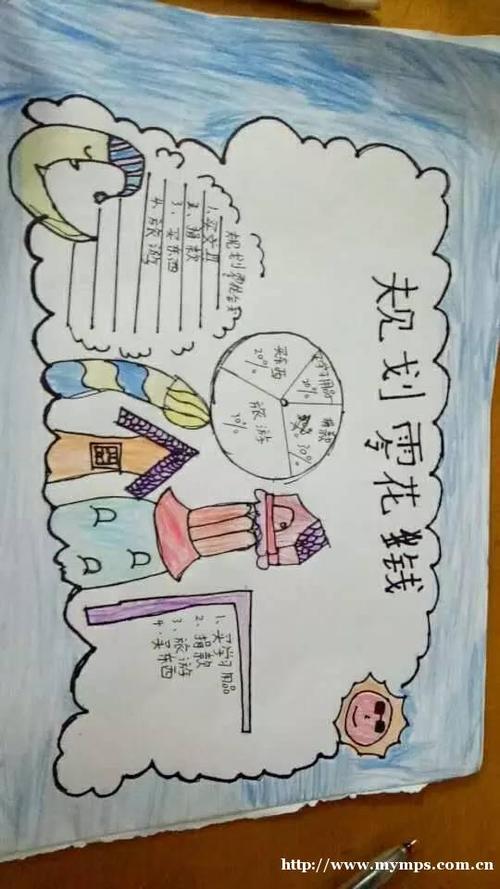 规划零花钱
规划零花钱
1、买文具
2、捐款
3、买东西
4、旅游
买东西
20%
学习用品
20%
捐款
30%
旅游
1、买学习用品
2、捐款
3、旅游
4、买东西
http://www.mymps.com.cn